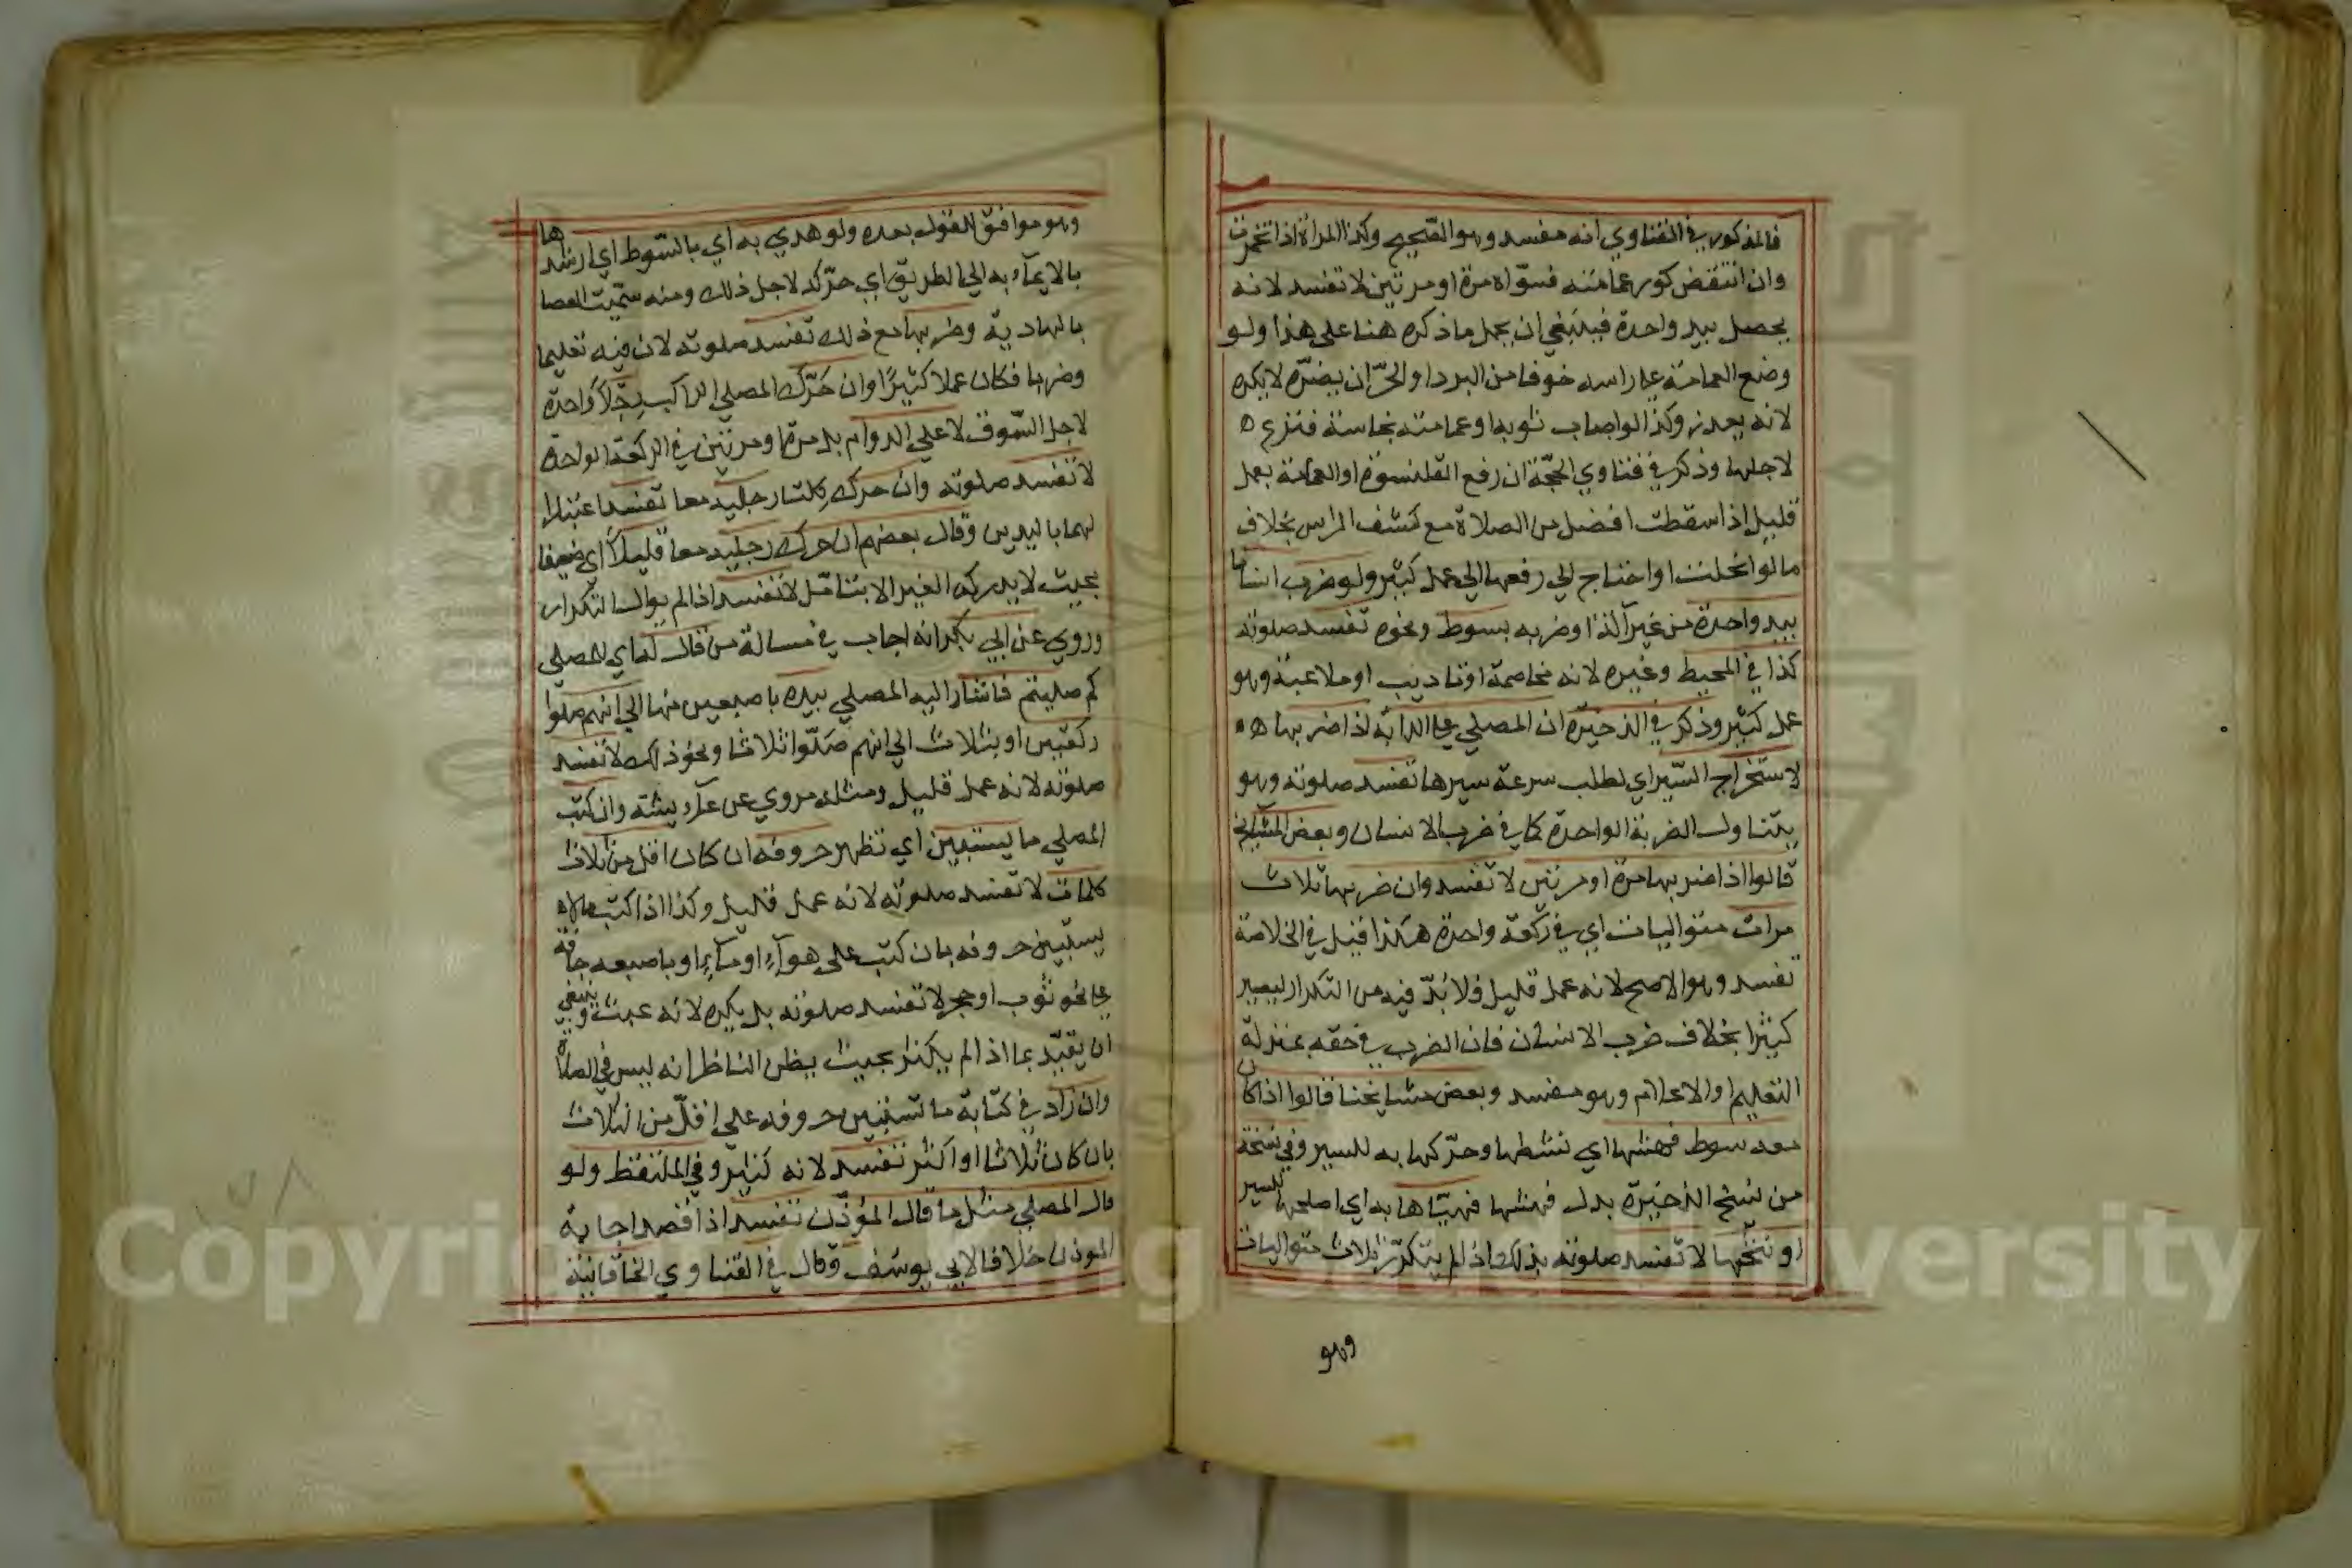 فالمذكور في الفتاوي انه مفسد وهو الصحيح وكذا المراة اذا تخمرت
وان انتقض كور عمامته فسواه مرة او مرتين لا تفسد لانه
يحصل بيد واحدة فينبغي ان يحمل ما ذكره هنا على هذا ولو
وضع العمامة على راسه خوفا من البرد او الحر ان يضره لا يكره
لانه يعذر وكذا لو اصاب ثوبه او عمامته نجاسة فنزعه
لاجلها وذكر في فتاوي الحجة ان رفع القلنسوة او العمامة بعمل
قليل اذا سقطت افضل من الصلاة مع كشف الراس بخلاف
ما لو انحلت او احتاج الي رفعها الي عمل كثير ولو ضرب انسانا
بيد واحدة من غير آلة او ضربه بسوط ونحوه تفسد صلوته
كذا في المحيط وغيره لانه مخاصمة او تاديب او ملاعبة وهو
عمل كثير وذكر في الذخيرة ان المصلي على الدابة اذا ضربها ه
لاستخراج السير اي لطلب سرعة سيرها تفسد صلوته وهو
يتناول الضربة الواحدة كما في ضرب الانسان وبعض المشايخ
قالوا اذا ضربها مرة او مرتين لا تفسد وان ضربها ثلاث
مرات متواليات اي في ركعة واحدة هكذا قيل في الخلاصة
تفسد وهو الاصح لانه عمل قليل فلا بد فيه من التكرار ليصير
كثيرا بخلاف ضرب الانسان فان الضرب في حقه بمنزلة
التعليم او الاعلام وهو مفسد وبعض مشايخنا قالوا اذا كان
معه سوط فهشها اي نشطها وحركها به للسير وفي نسخة
من نسخ الذخيرة بدل فهشها فهياها به اي اصلحها للسير
او نخها لا تفسد صلوته بذلك اذا لم يتكرر ثلاث متواليات
وهو
وهو موافق للقول بعده ولو هدي به اي بالسوط اي ارشدها
بالايماء به الي الطريق اي حركه لاجل ذلك ومنه سميت العصا
بالهادية وضربها مع ذلك تفسد صلوته لان فيه تعليما
وضربا فكان عملا كثيرا وان حرك المصلي الراكب رجلا واحدة
لاجل السوق لا على الدوام بل مرة او مرتين في الركعة الواحدة
لا تفسد صلوته وان حرك كلتا رجليه معا تفسد اعتبارا
لهما باليدين وقال بعضهم ان حرك رجليه معا قليلا اي ضعيفا
بحيث لا يدركه الغير الا بتامل لا تفسد اذا لم يوال التكرار
وروي عن ابي بكر انه اجاب في مسالة من قال له اي للمصلي
كم صليتم فاشار اليه المصلي بيده باصبعين منها الي انهم صلوا
ركعتين او بثلاث الي انهم صلوا ثلاثا ونحو ذلك لا تفسد
صلوته لانه عمل قليل ومثله مروي عن عآيشة وان كتب
المصلي ما يستبين اي تظهر حروفه ان كان اقل من ثلاث
كلمات لا تفسد صلوته لانه عمل قليل وكذا اذا كتب مالا
يستبين حروفه بان كتب على هوآء او مآء او باصبعه جافة
على نحو ثوب او حجر لا تفسد صلوته بل يكره لانه عبث وينبغي
ان يقيد بما اذا لم يكثر بحيث يظن الناظر انه ليس في الصلاة
وان زاد في كتابة ما تستبين حروفه على اقل من الثلاث
بان كان ثلاثا او اكثر تفسد لانه كثير وفي الملتقط ولو
قال المصلي مثل ما قال المؤذن تفسد اذا قصد اجابة
الموذن خلافا لابي يوسف وقال في الفتاوي الخاقانية